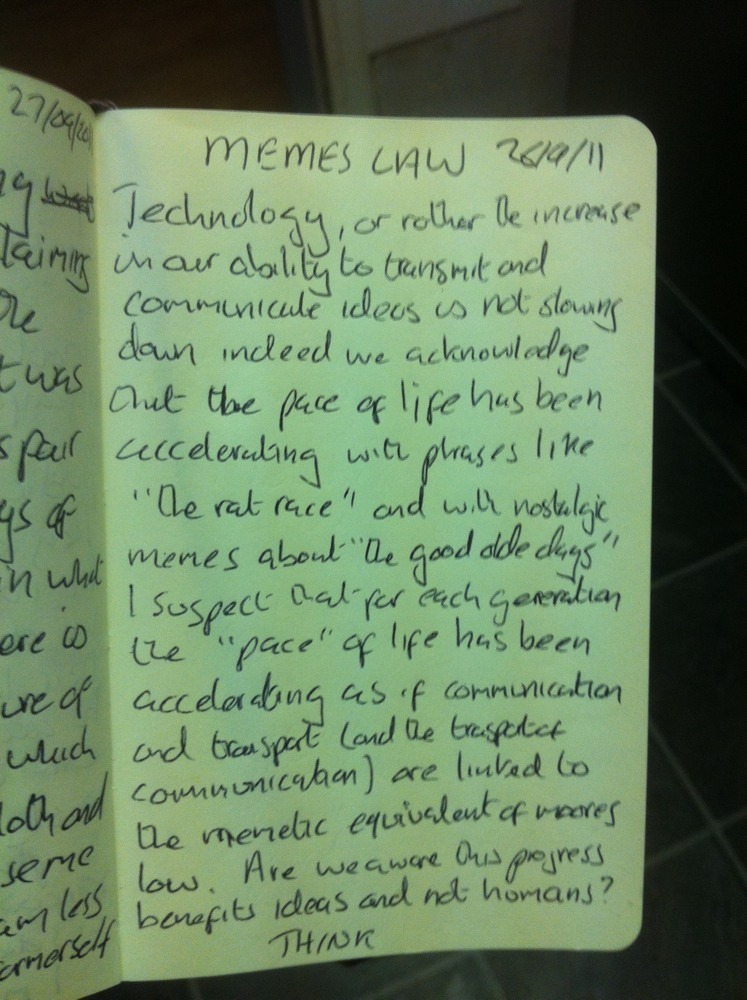 27/09/20
MEMES LAW 28/9/11
Technology, or rather the increase
in our ability to transmit and
communicate ideas is not slowing
down indeed we acknowledge
that the pace of life has been
accelerating with phrases like
"the rat race" and with nostalgic
memes about "the good olde days"
I suspect that for each generation
the "pace" of life has been
accelerating as if communication
and transport (and the trasport of
communication) are linked to
the memetic equivalent of moores
law. Are we aware this progress
benefits ideas and not humans?
THINK
taining
the
t was
s pair
ys of
in what
ere is
ure of
which
loth and
seme
am less
ormerself